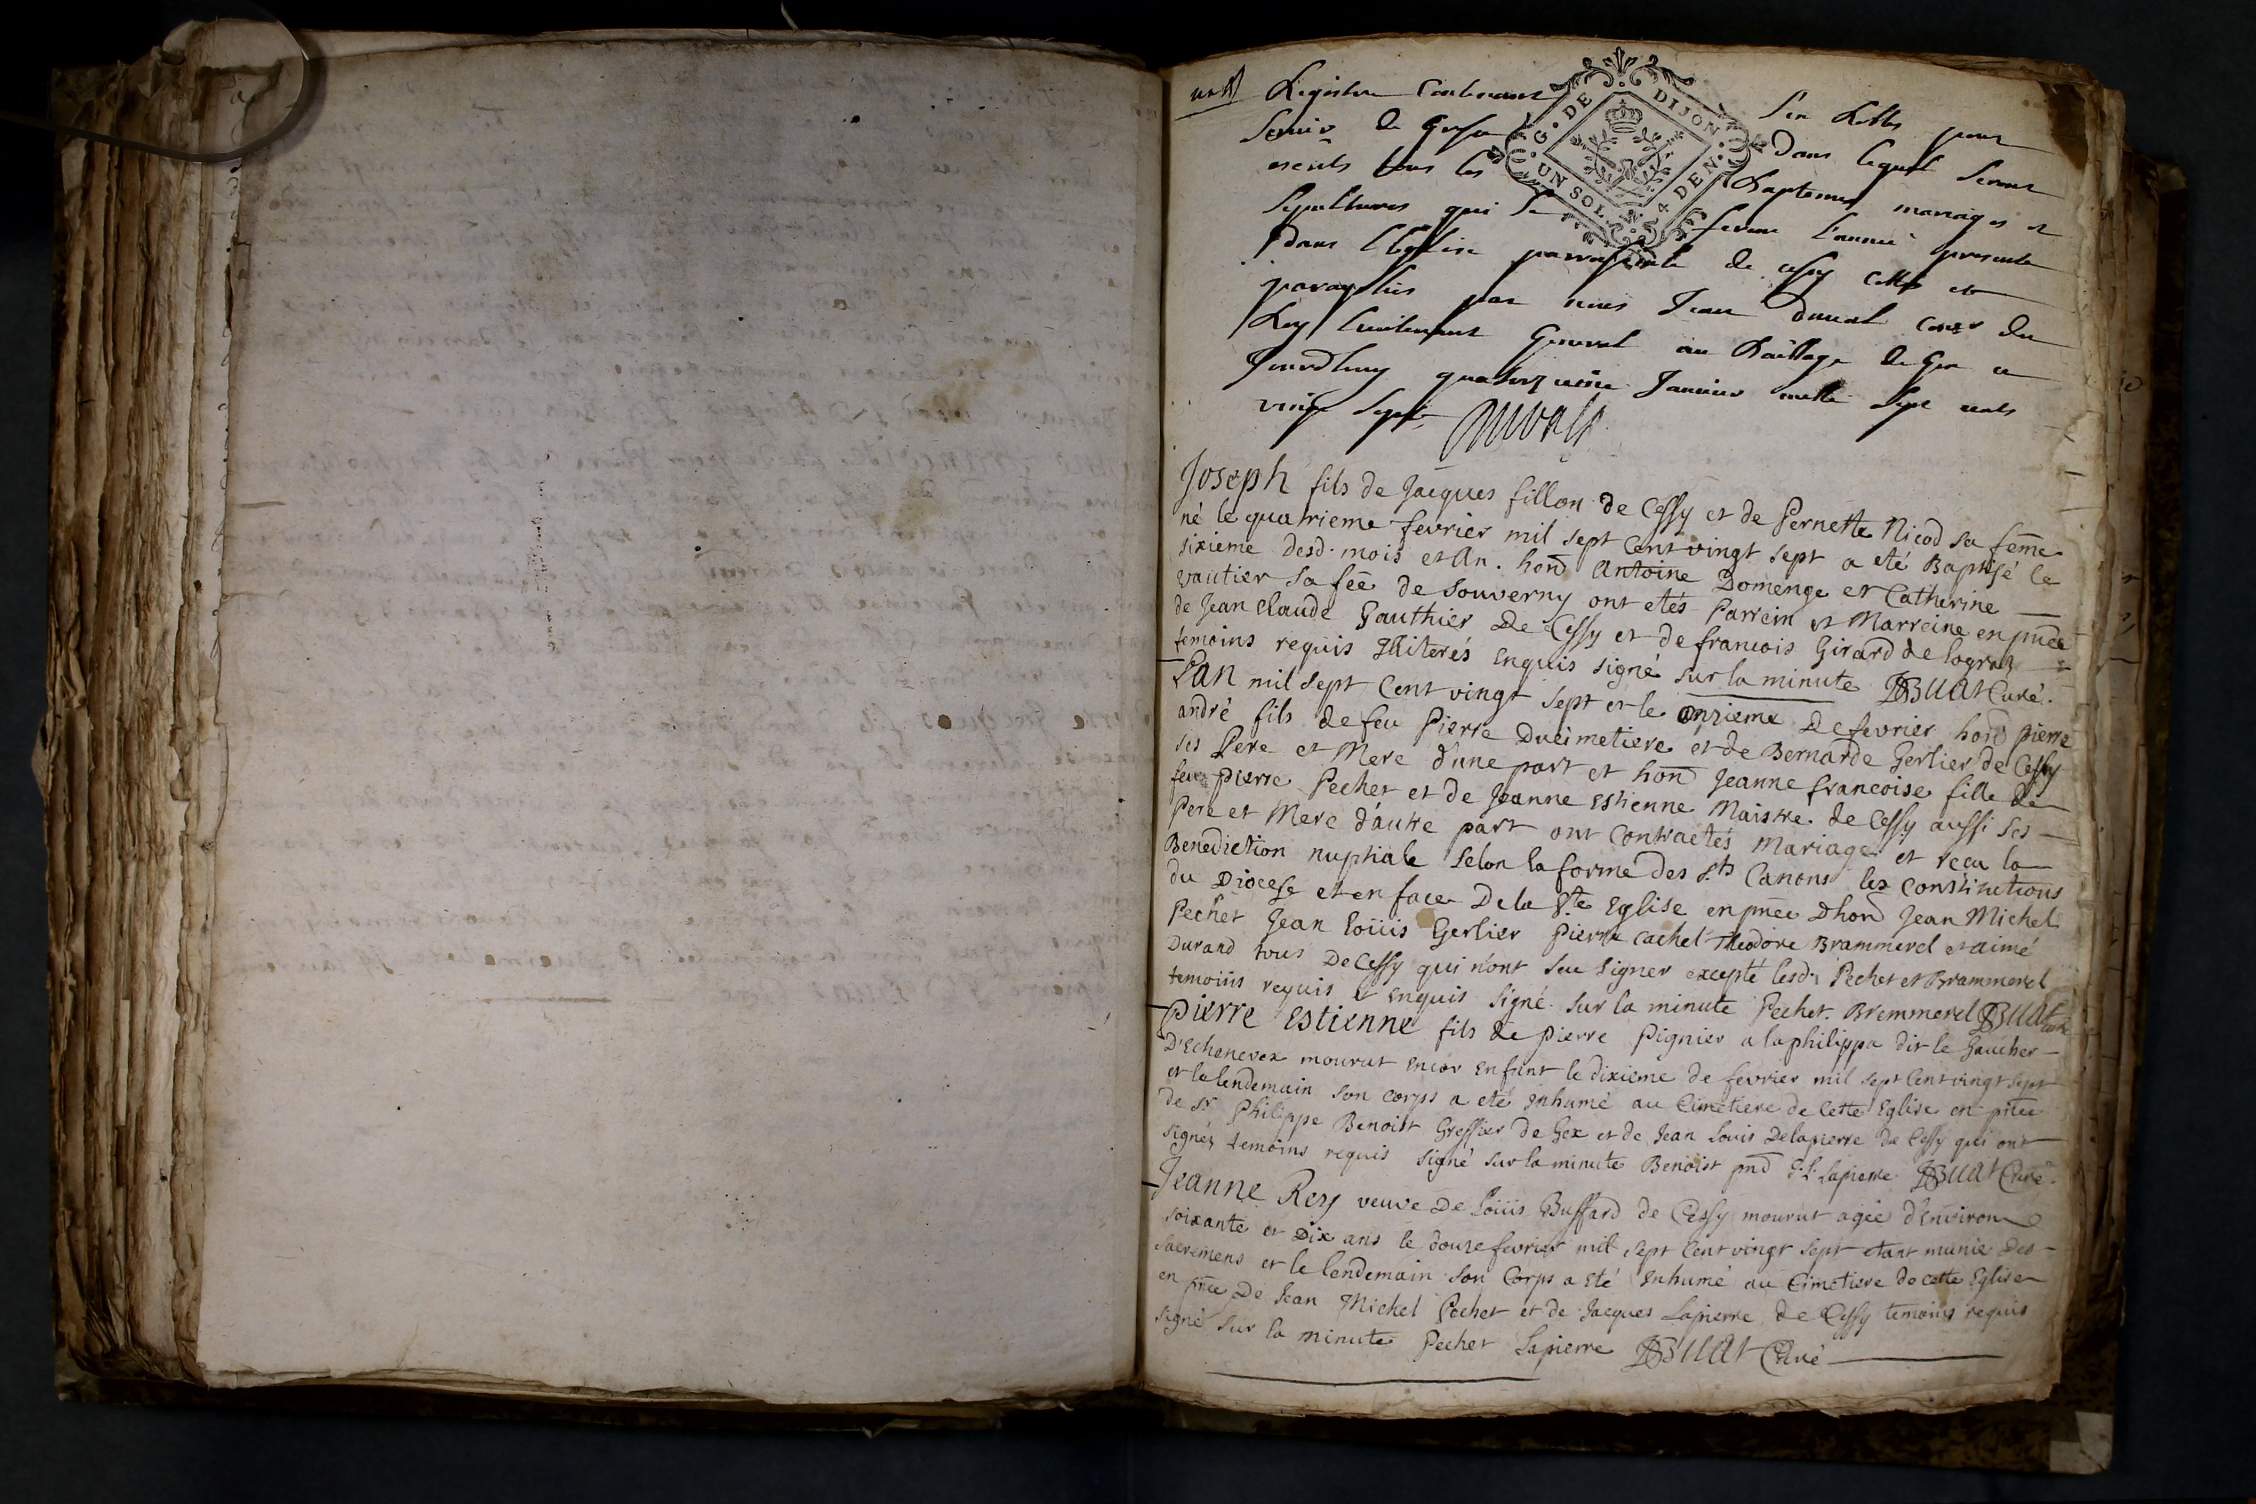 Registre Contenant six Rolles pour
servir de dans lequel seront
escrits tous les Baptemes mariages et
sepultures qui se feront l'année presente
dans l'Eglise parroissiale de cessy cottés et
paraphés par nous Jean duval Conser du
Roy Lieutenant General au Baillage de Gex ce
Jourdhuy quatorzieme Janvier mille sept cents
vingt sept. Duvall
G. DE DIJON
UN SOL 4 DEN.
Joseph fils de Jacques fillon de Cessy et de Pernette Nicod sa feme
né le quatrieme fevrier mil sept Cent vingt sept a eté Baptisé le
sixieme desd. mois et An. hond Antoine Domenge et Catherine
vautier sa fee de souverny ont etés Parrein et Marreine en pnce
de Jean Claude Gauthier De Cessy et de francois Girard de lograz
temoins requis Illiterés enquis signé sur la minute Buat Curé.
L'an mil sept Cent vingt sept et le onzieme De fevrier hond pierre
andré fils de feu Pierre Ducimetiere et de Bernarde Gerlier de Cessy
ses Pere et Mere d'une part et hon Jeanne francoise fille de
feu pierre Pechet et de Jeanne Estienne Maistre de Cessy aussi ses
Pere et Mere d'autre part ont Contractés Mariage et reçu la
Benediction nuptiale selon la forme des sts Canons les constitutions
du Diocese et en face De la ste Eglise en pnce Dhon Jean Michel
Pechet Jean loüis Gerlier pierre cachet Theodore Brammerel et aimé
Durand tous De Cessy qui n'ont seu signer excepté lesd. Pechet et Brammerel
temoins requis et enquis signé sur la minute Pechet. Bremmerel Buat Curé
Pierre Estienne fils de pierre Pignier a la philippa dit le Gaucher
D'Echenevex mourut encor enfant le dixieme de fevrier mil sept Cent vingt sept
et le lendemain son corps a eté inhumé au Cimetiere de Cette Eglise en pnce
de sr. Philippe Benoist Greffier de Gex et de Jean Louis Delapierre de Cessy qui ont
signés temoins requis signé sur la minute Benoist pnd J. L. Lapierre Buat Curé.
Jeanne Rey veuve De Loüis Buffard de Cessy mourut agée d'Environ
soixante et Dix ans le douze fevrier mil sept Cent vingt sept etant munie des
sacremens et le lendemain son Corps a eté inhumé au Cimetiere de cette Eglise
en pnce De Jean Michel Pechet et de Jacques Lapierre de Cessy temoins requis
signé sur la minute Pechet Lapierre Buat Curé